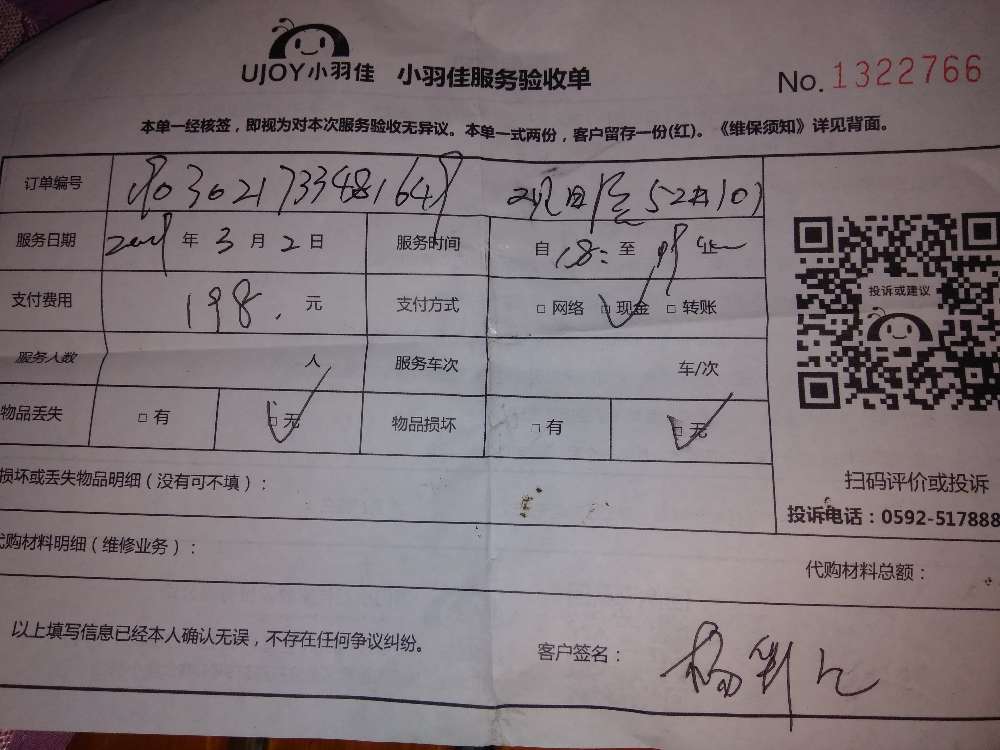 UJOY小羽佳 小羽佳服务验收单 No. 1322766
本单一经核签，即视为对本次服务验收无异议。本单一式两份，客户留存一份(红)。《维保须知》详见背面。
订单编号
服务日期 年 3 月 2 日 服务时间 自 18: 至
支付费用 198. 元 支付方式 □ 网络 □ 现金 □ 转账
投诉或建议
服务人数 人 服务车次 车/次
物品丢失 □ 有 □ 无 物品损坏 □ 有 □ 无
损坏或丢失物品明细（没有可不填）：
扫码评价或投诉
投诉电话：0592-517888
代购材料明细（维修业务）：
代购材料总额：
以上填写信息已经本人确认无误，不存在任何争议纠纷。
客户签名：